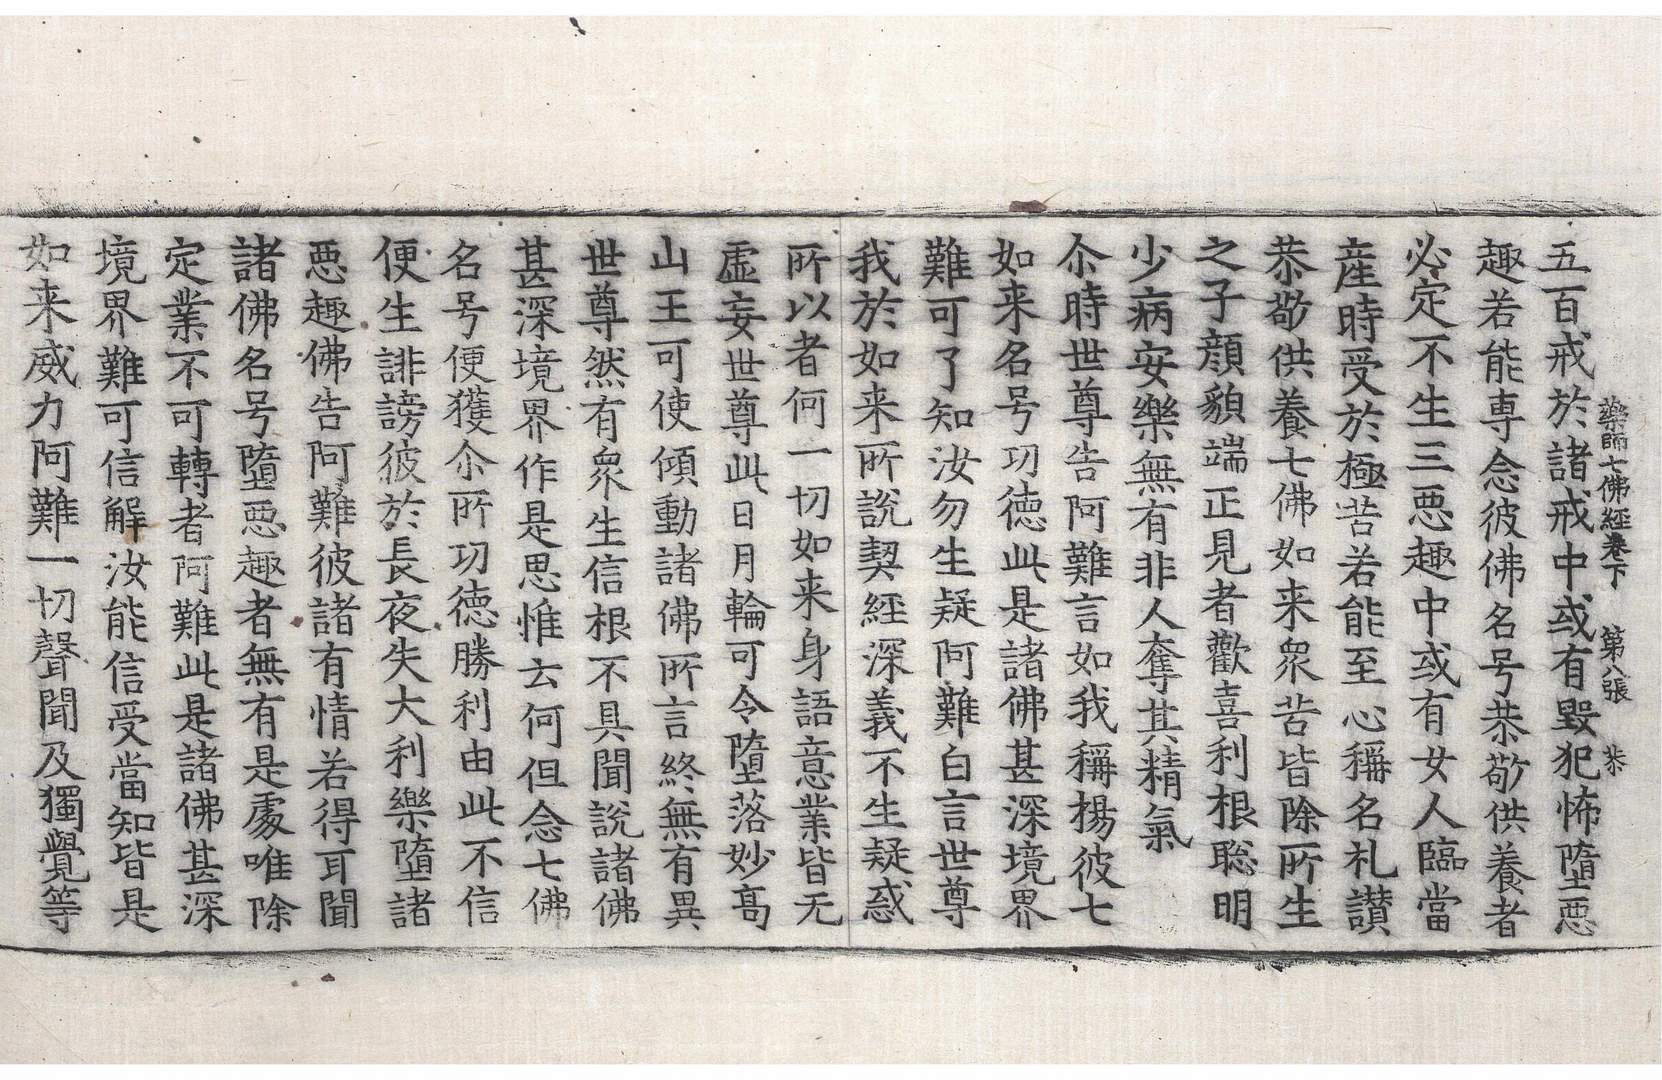 藥師七佛經卷下　第八張　恭
五百戒於諸戒中或有毀犯怖墮惡
趣若能専念彼佛名号恭敬供養者
必定不生三惡趣中或有女人臨當
産時受於極苦若能至心稱名礼讃
恭敬供養七佛如来衆苦皆除所生
之子顔貌端正見者歡喜利根聡明
少病安樂無有非人奪其精氣
尒時世尊告阿難言如我稱揚彼七
如来名号功德此是諸佛甚深境界
難可了知汝勿生疑阿難白言世尊
我於如来所說契經深義不生疑惑
所以者何一切如来身語意業皆无
虛妄世尊此日月輪可令墮落妙高
山王可使傾動諸佛所言終無有異
世尊然有衆生信根不具聞說諸佛
甚深境界作是思惟云何但念七佛
名号便獲尒所功德勝利由此不信
便生誹謗彼於長夜失大利樂墮諸
惡趣佛告阿難彼諸有情若得耳聞
諸佛名号墮惡趣者無有是處唯除
定業不可轉者阿難此是諸佛甚深
境界難可信解汝能信受當知皆是
如来威力阿難一切聲聞及獨覺等